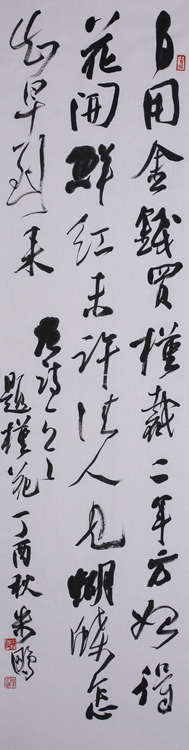 自用金錢買槿栽二年方始得
花開鮮紅未許佳人見蝴蝶怎
知早到來
題槿花 丁酉秋 朱鵬